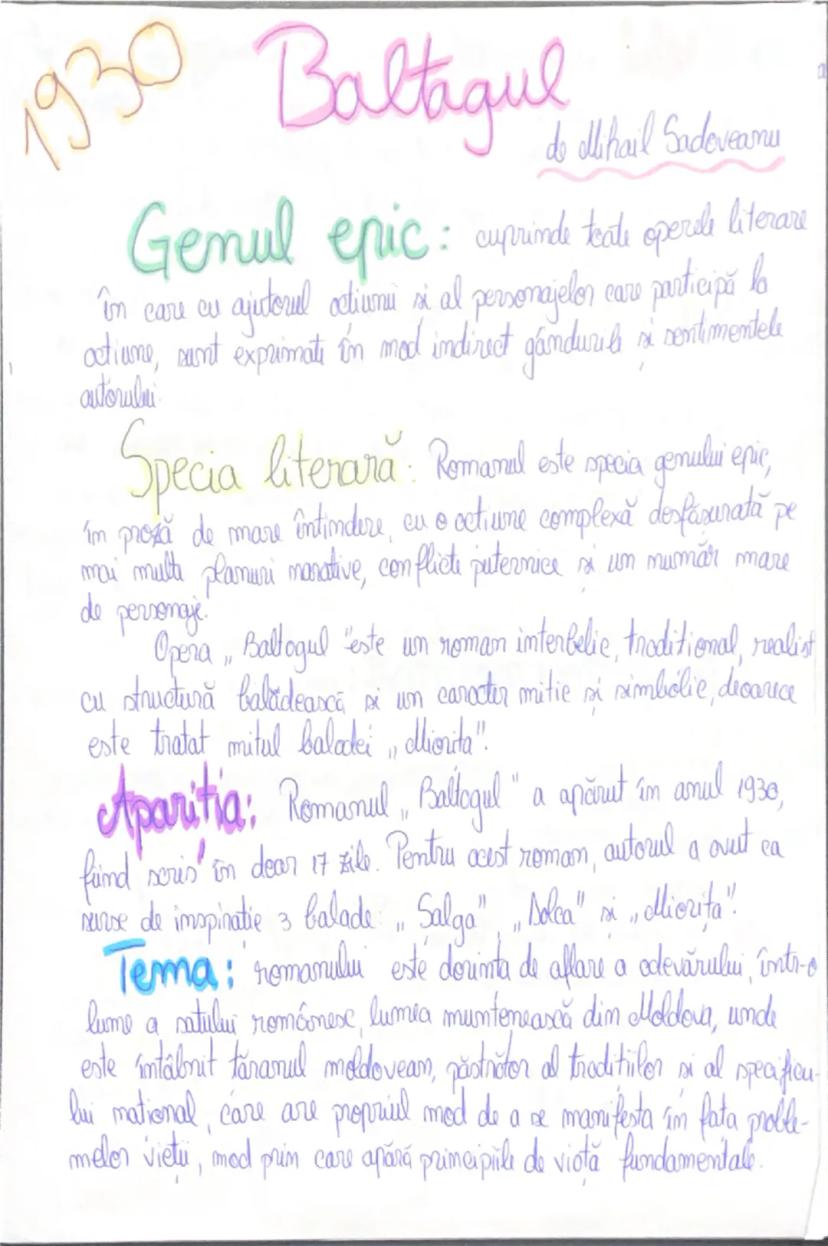 1930
Baltagul
de Mihail Sadoveanu
Genul epic: cuprinde toate operele literare
în care cu ajutorul actiunii si al personajelor care participă la
actiune, sunt exprimate în mod indirect gândurile si sentimentele
autorului.
Specia literară: Romanul este specia genului epic,
în proză de mare întindere, cu o actiune complexă desfăsurată pe
mai multe planuri narative, conflicte puternice si un număr mare
de personaje.
Opera „Baltagul" este un roman interbelic, traditional, realist
cu structură baladească si un caracter mitic si simbolic, deoarece
este tratat mitul baladei „Miorita".
Aparitia: Romanul „Baltagul" a apărut în anul 1930,
fiind scris în doar 17 zile. Pentru acest roman, autorul a avut ca
surse de inspiratie 3 balade: „Salga" „Dolca" si „Miorița".
Tema: romanului este dorinta de aflare a adevărului, într-o
lume a satului românesc, lumea muntenească din Moldova, unde
este întâlnit tăranul moldovean, păstrător al traditiilor si al specificu-
lui national, care are propriul mod de a se manifesta în fata proble-
melor vieții, mod prin care apără principiile de viață fundamentale.